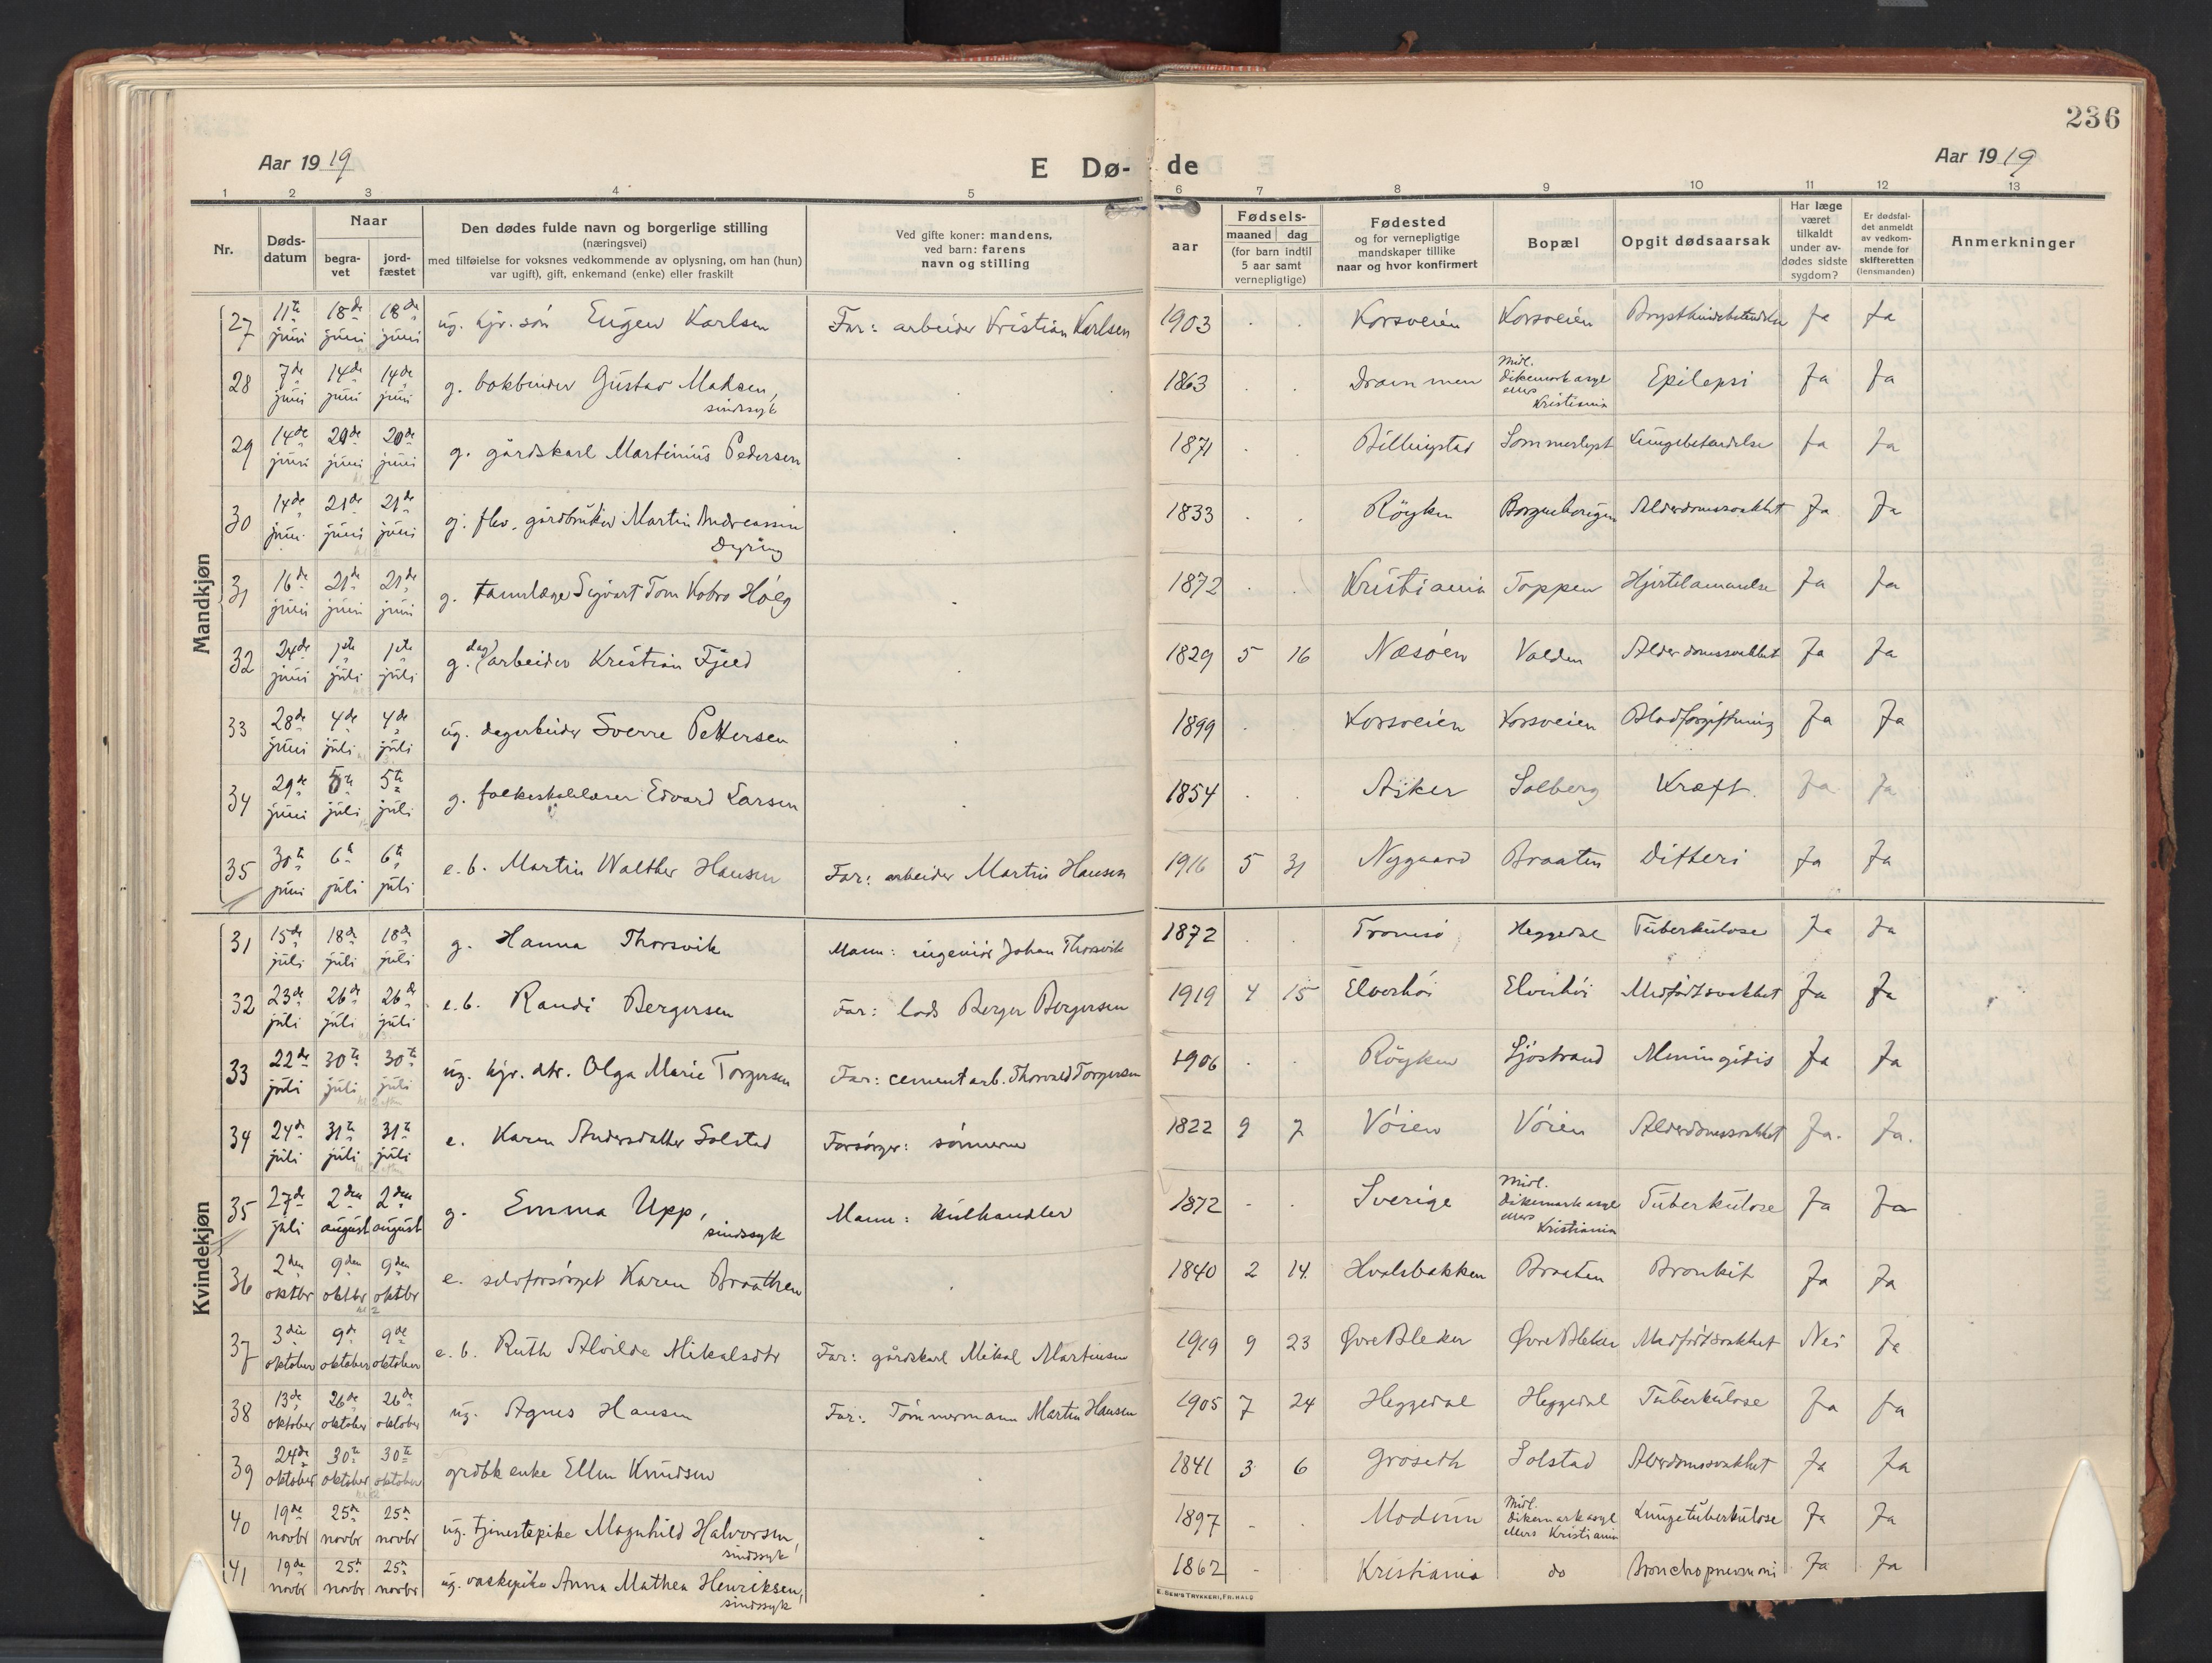 236
Aar 1919
E Dø-
de
Aar 1919
1 2 3 4 5 6 7 8 9 10 11 12 13
Nr.
Døds-
datum
Naar
begra-
vet
jord-
fæstet
Den dødes fulde navn og borgerlige stilling
(næringsvei)
med tilføielse for voksnes vedkommende av oplysning, om han (hun)
var ugift), gift, enkemand (enke) eller fraskilt
Ved gifte koner: mandens,
ved barn: farens
navn og stilling
aar
Fødsels-
maaned dag
(for barn indtil
5 aar samt
vernepligtige)
Fødested
og for vernepligtige
mandskaper tillike
naar og hvor konfirmert
Bopæl
Opgit dødsaarsak
Har læge
været
tilkaldt
under av-
dødes sidste
sygdom?
Er dødsfal-
det anmeldt
av vedkom-
mende for
skifteretten
(lensmanden)
Anmerkninger
Mandkjøn
27 11te juni 18de juni 18de juni ug. hjv. søn Eugen Karlsen Far: arbeider Kristian Karlsen 1903 . . Korsveien Korsveien Ja Ja
28 7de juni 14de juni 14de juni g. bokbinder Gustav Madsen, sindssyk . 1863 . . Drammen Midl. Dikemark asyl ellers Kristiania Epilepsi Ja Ja
29 14de juni 20de juni 20de juni g. gårdskarl Martinius Pedersen . 1871 . . Billingstad Lungebetændelse Ja Ja
30 14de juni 21de juni 21de juni g. flv. gårdbruker Martin Andreassen Dyring . 1833 . . Røyken Alderdomssvakhet Ja Ja
31 16de juni 21de juni 21de juni g. tannlæge Sigvart Tom Kobro Høeg . 1872 . . Kristiania Toppen Hjertelammelse Ja Ja
32 24de juni 1ste juli 1ste juli g. dagarbeider Kristian Fjeld . 1829 5 16 Næsøen Valden Alderdomssvakhet Ja Ja
33 28de juni 4de juli 4de juli ug. dagarbeider Sverre Pettersen . 1899 . . Korsveien Korsveien Blodforgiftning Ja Ja
34 29de juni 5te juli 5te juli g. folkeskolelærer Edvard Larsen . 1854 . . Asker Solberg Kræft. Ja Ja
35 30te juni 6te juli 6te juli e.b. Martin Walther Hansen Far: arbeider Martin Hansen 1916 5 31 Nygaard Braaten Difteri Ja Ja
Kvindekjøn
31 15de juli 18de juli 18de juli g. Hanna Thorsvik Mann: ingeniør Johan Thorsvik 1872 . . Tromsø Heggedal Tuberkulose Ja Ja
32 23de juli 26de juli 26de juli e.b. Randi Bergersen Far: lods Berger Bergersen 1919 4 15 Elverhøi Elverhøi Medfødt svakhet Ja Ja
33 22de juli 30te juli 30te juli ug. hjv. dtr. Olga Marie Torgersen Far: cementarb. Thorvald Torgersen 1906 . . Røyken Sjøstrand Meningitis Ja Ja
34 24de juli 31te juli 31te juli e. Karen Andersdatter Solstad Forsørger: sønnerne 1822 9 7 Vøien Vøien Alderdomssvakhet Ja. Ja.
35 27de juli 2den august 2den august g. Emma Upp, sindssyk Mann: kulhandler 1872 - . Sverige Midl. Dikemark asyl ellers Kristiania Tuberkulose Ja Ja
36 2den oktbr 9den oktbr 9den oktbr e. selvforsørget Karen Braathen . 1840 2 14. Hvalsbakken Braaten Bronkit Ja Ja
37 3die oktober 9de oktober 9de oktober e.b. Ruth Alvilde Mikalsdtr Far: gårdskarl Mikal Martinsen 1919 9 23 Øvre Bleker Øvre Bleker Medfødt svakhet Nei Ja
38 13de oktober 26de oktober 26de oktober ug. Agnes Hansen Far: Tømmermann Martin Hansen 1905 7 24 Heggedal Heggedal Tuberkulose Ja Ja
39 24de oktober 30te oktober 30te oktober grdbk enke Ellen Knudsen . 1841 3 6 Groseth Solstad Alderdomssvakhet Ja Ja
40 19de novbr 25de novbr 25de novbr ug. tjenestepike Magnhild Halvorsen, sindssyk . 1897 - . Modum Midl. Dikemark asyl ellers Kristiania Lungetuberkulose Ja Ja
41 19de novbr 25de novbr 25de novbr ug. vaskepike Anna Mathea Henriksen, sindssyk . 1862 - . Kristiania do Bronchopneumoni Ja Ja
E. SEM'S TRYKKERI, FR.HALD